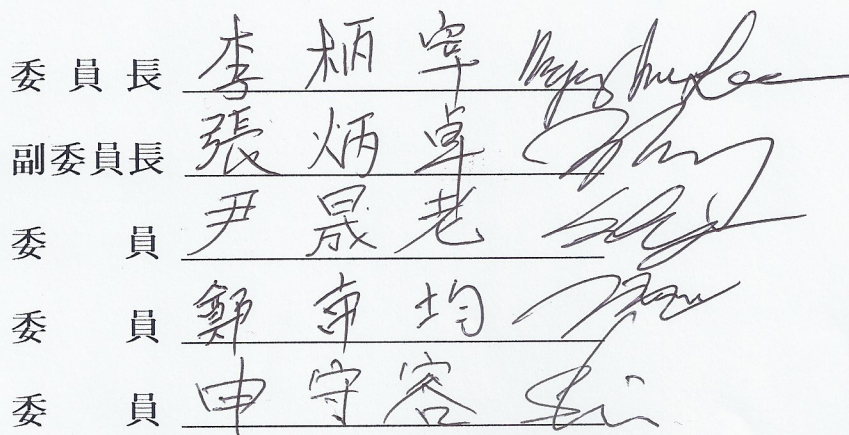 委員長 李柄宰
副委員長 張炳卓
委員 尹晟老
委員 鄭 均
委員 申守容